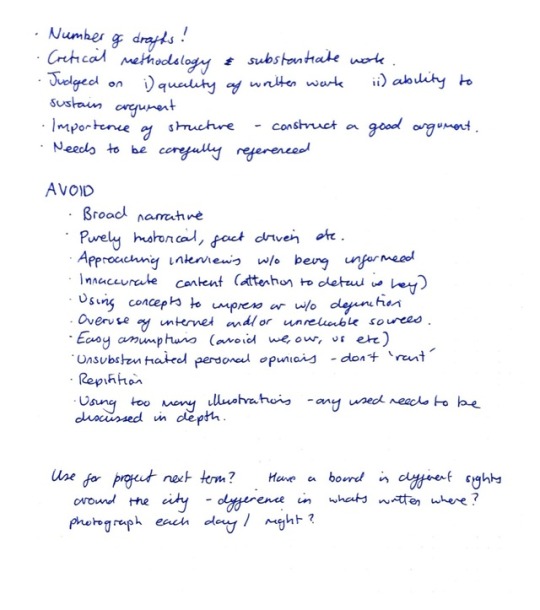 · Number of drafts!
· Critical methodology & substantiate work.
· Judged on i) quality of written work ii) ability to
sustain argument
· Importance of structure - construct a good argument.
· Needs to be carefully referenced
AVOID
· Broad narrative
· Purely historical, fact driven etc.
· Approaching interviews w/o being informed
· Innaccurate content (attention to detail is key)
· Using concepts to impress or w/o definition
· Overuse of internet and/or unreliable sources.
· Easy assumptions (avoid we, our, us etc)
· Unsubstantiated personal opinions - don't 'rant'
· Repitition
· Using too many illustrations - any used needs to be
discussed in depth.
Use for project next term? Have a board in different sights
around the city - difference in whats written where?
photograph each day / night?